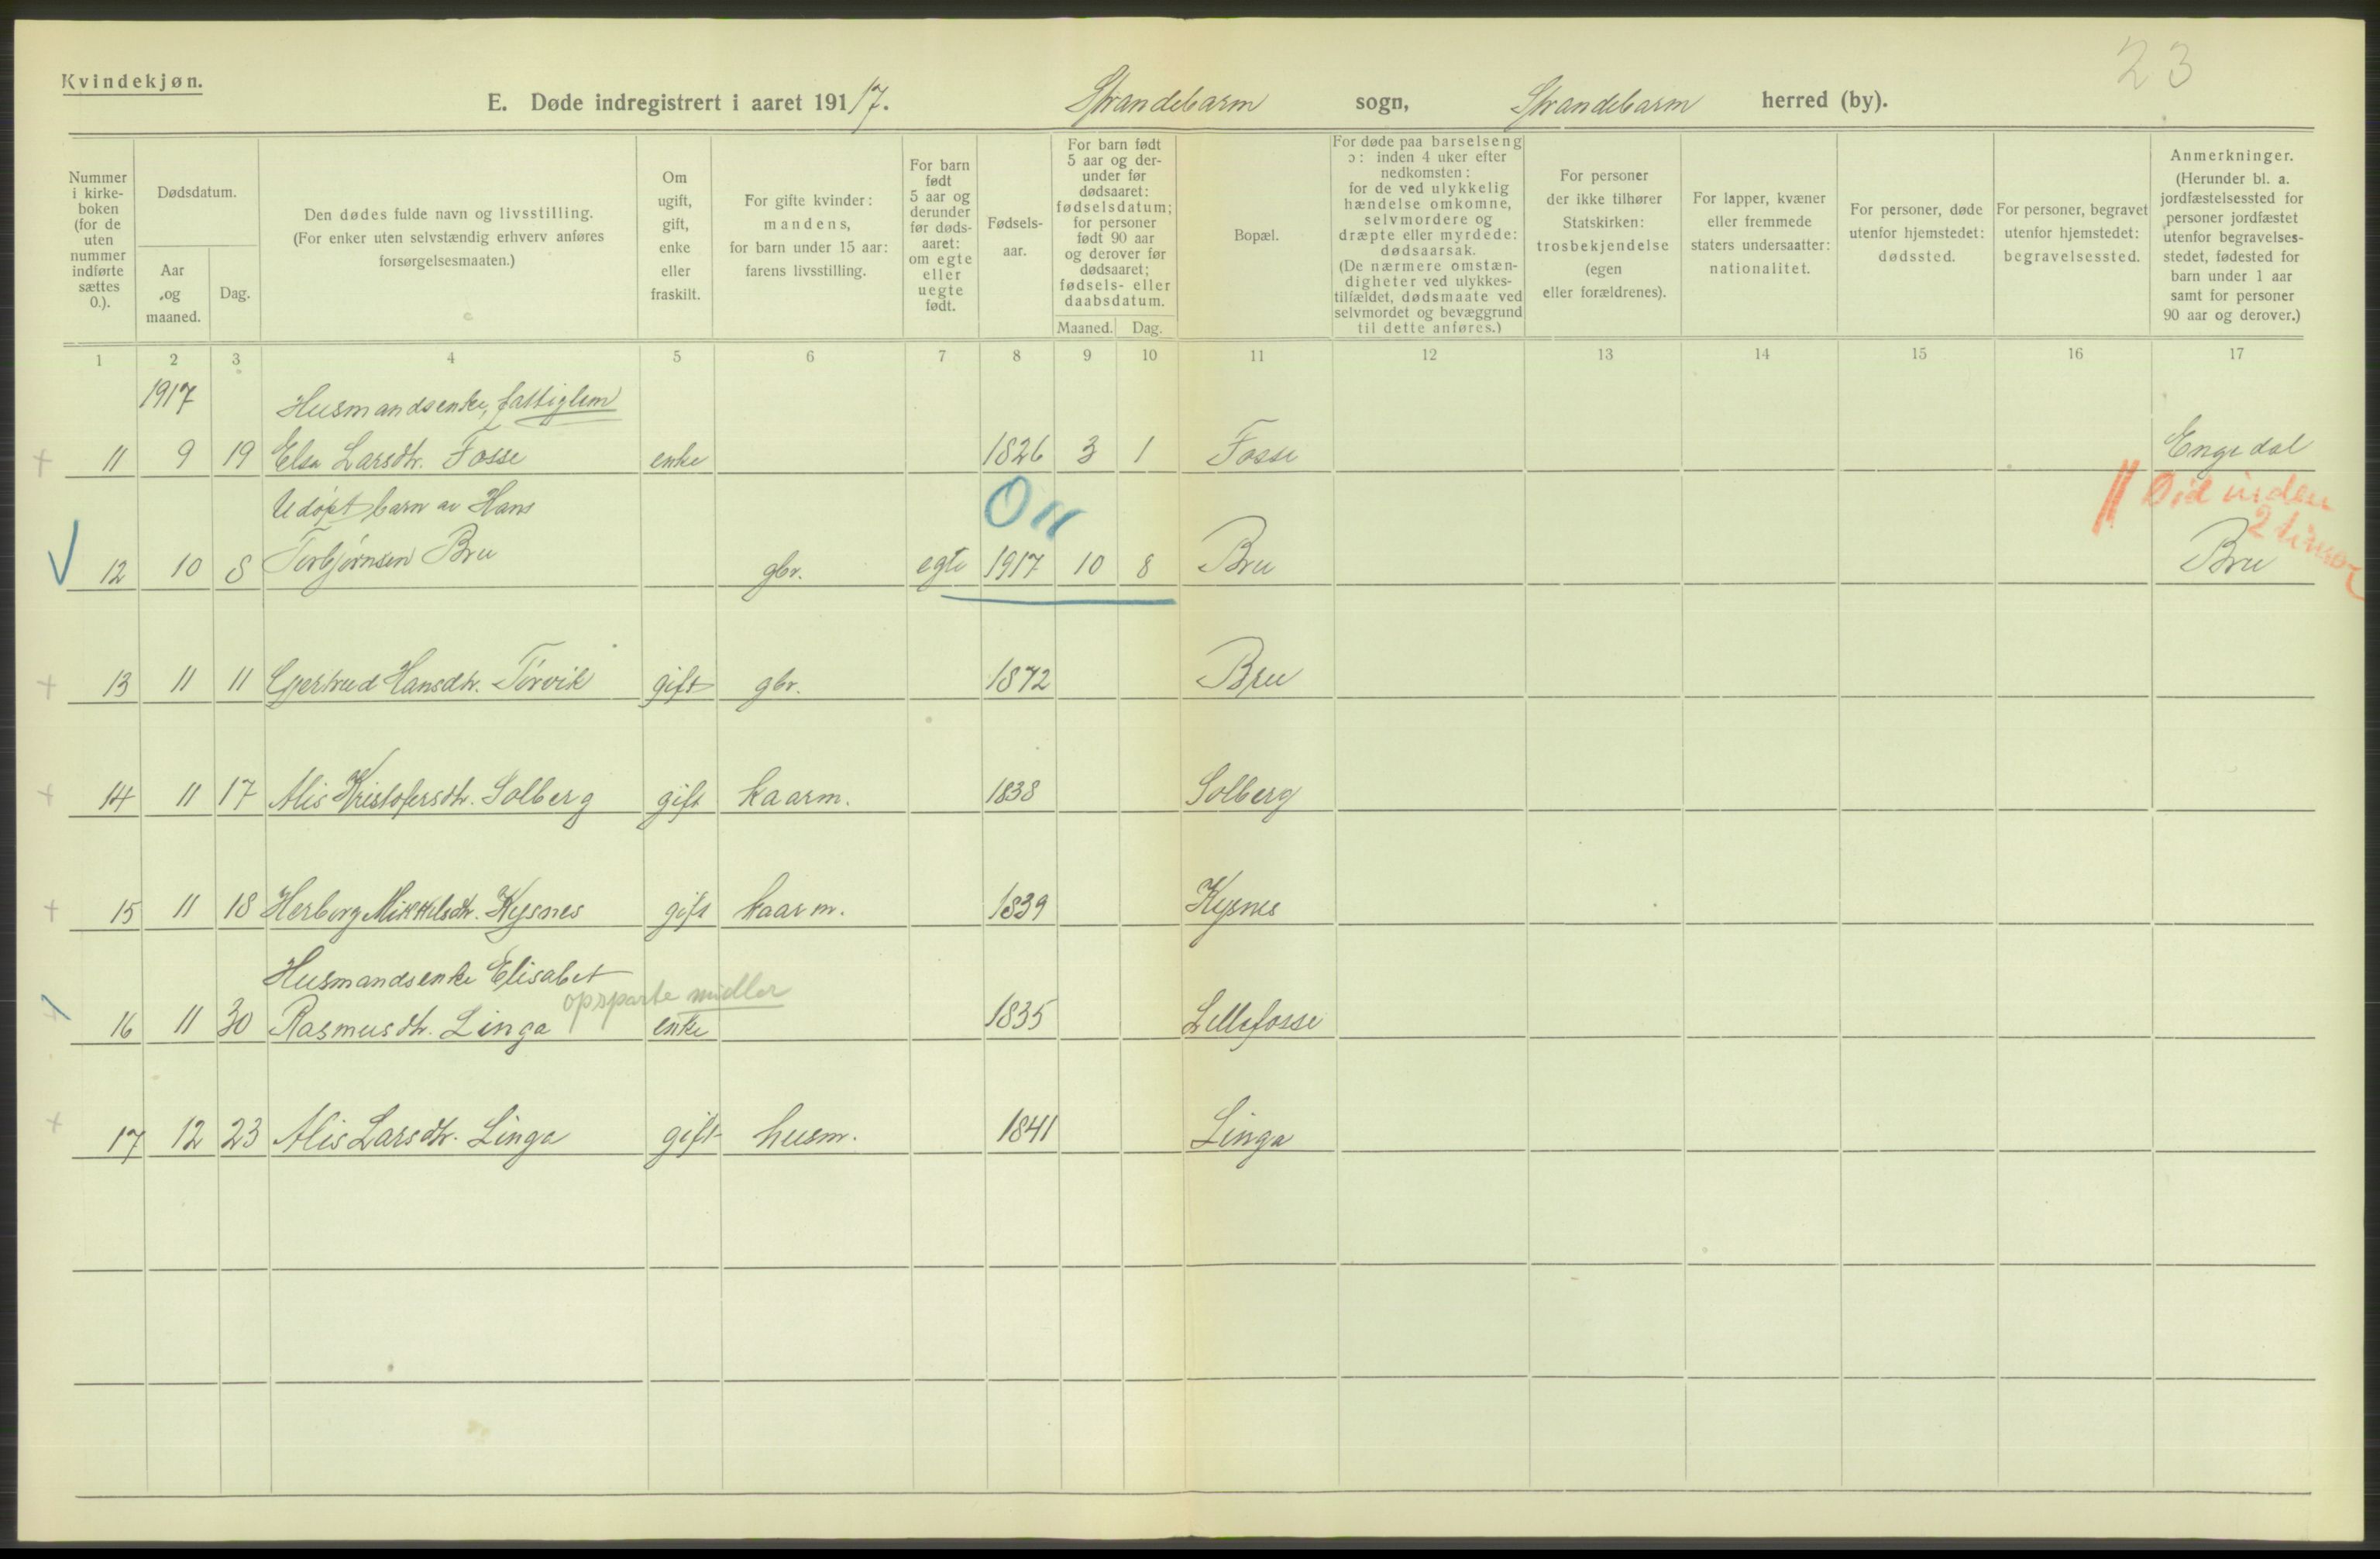 23
Kvindekjøn.
E. Døde indregistrert i aaret 1917. Strandebarm sogn, Strandebarm herred (by).
Nummer i kirke-boken (for de uten nummer indførte sættes 0.).
Dødsdatum.
Aar og maaned.
Dag.
Den dødes fulde navn og livsstilling.
(For enker uten selvstændig erhverv anføres
forsørgelsesmaaten.)
Om ugift, gift, enke eller fraskilt.
For gifte kvinder: mandens, for barn under 15 aar: farens livsstilling.
For barn født 5 aar og derunder før døds-aaret: om egte eller uegte født.
Fødsels-aar.
For barn født 5 aar og der-under før dødsaaret: fødselsdatum; for personer født 90 aar og derover før dødsaaret; fødsels- eller daabsdatum.
Maaned. Dag.
Bopæl.
For døde paa barselseng ɔ: inden 4 uker efter nedkomsten: for de ved ulykkelig hændelse omkomne, selvmordere og dræpte eller myrdede: dødsaarsak. (De nærmere omstæn-digheter ved ulykkes-tilfældet, dødsmaate ved selvmordet og bevæggrund til dette anføres.)
For personer der ikke tilhører Statskirken: trosbekjendelse (egen eller forældrenes).
For lapper, kvæner eller fremmede staters undersaatter: nationalitet.
For personer, døde utenfor hjemstedet: dødssted.
For personer, begravet utenfor hjemstedet: begravelsessted.
Anmerkninger. (Herunder bl. a. jordfæstelsessted for personer jordfæstet utenfor begravelses-stedet, fødested for barn under 1 aar samt for personer 90 aar og derover.)
1 2 3 4 5 6 7 8 9 10 11 12 13 14 15 16 17
1917 Husmandsenke, fattiglem
+ 11 9 19 Elsa Larsdtr. Fosse enke 1826 3 1 Fosse Engedal
Udøpt barn av Hans 0 11 Død inden
2 timer
12 10 8 Torbjørnsen Bru gbr. egte 1917 10 8 Bru Bru
+ 13 11 11 Gjertrud Hansdtr. Tørvik gift gbr. 1872 Bru
+ 14 11 17 Alis Kristofersdtr. Solberg gift kaarm. 1838 Solberg
+ 15 11 18 Herborg Mikkelsdtr. Kysnes gift kaarm. 1839 Kysnes
Husmandsenke Elisabet
opsparte midler
+ 16 11 30 Rasmusdtr. Linga enke 1835 Lillefosse
+ 17 12 23 Alis Larsdtr. Linga gift husm. 1841 Linga